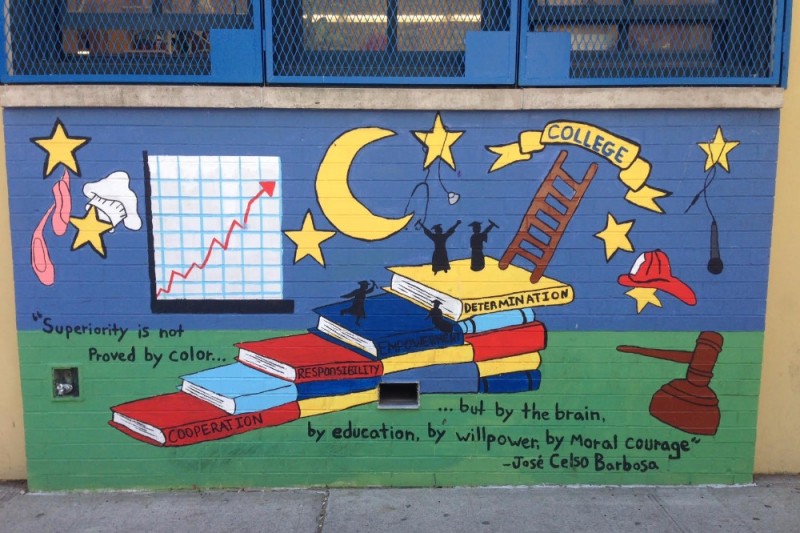 COLLEGE
DETERMINATION
EMPOWERMENT
RESPONSIBILITY
COOPERATION
"Superiority is not
Proved by color...
... but by the brain,
by education, by willpower, by Moral courage"
-José Celso Barbosa